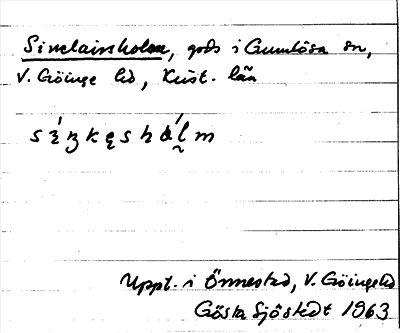 Sinclairsholm, gods i Gumlösa sn,
V. Göinge hd, Krist. län
Uppt. i Önnestad, V. Göinge hd
Gösta Sjöstedt 1963